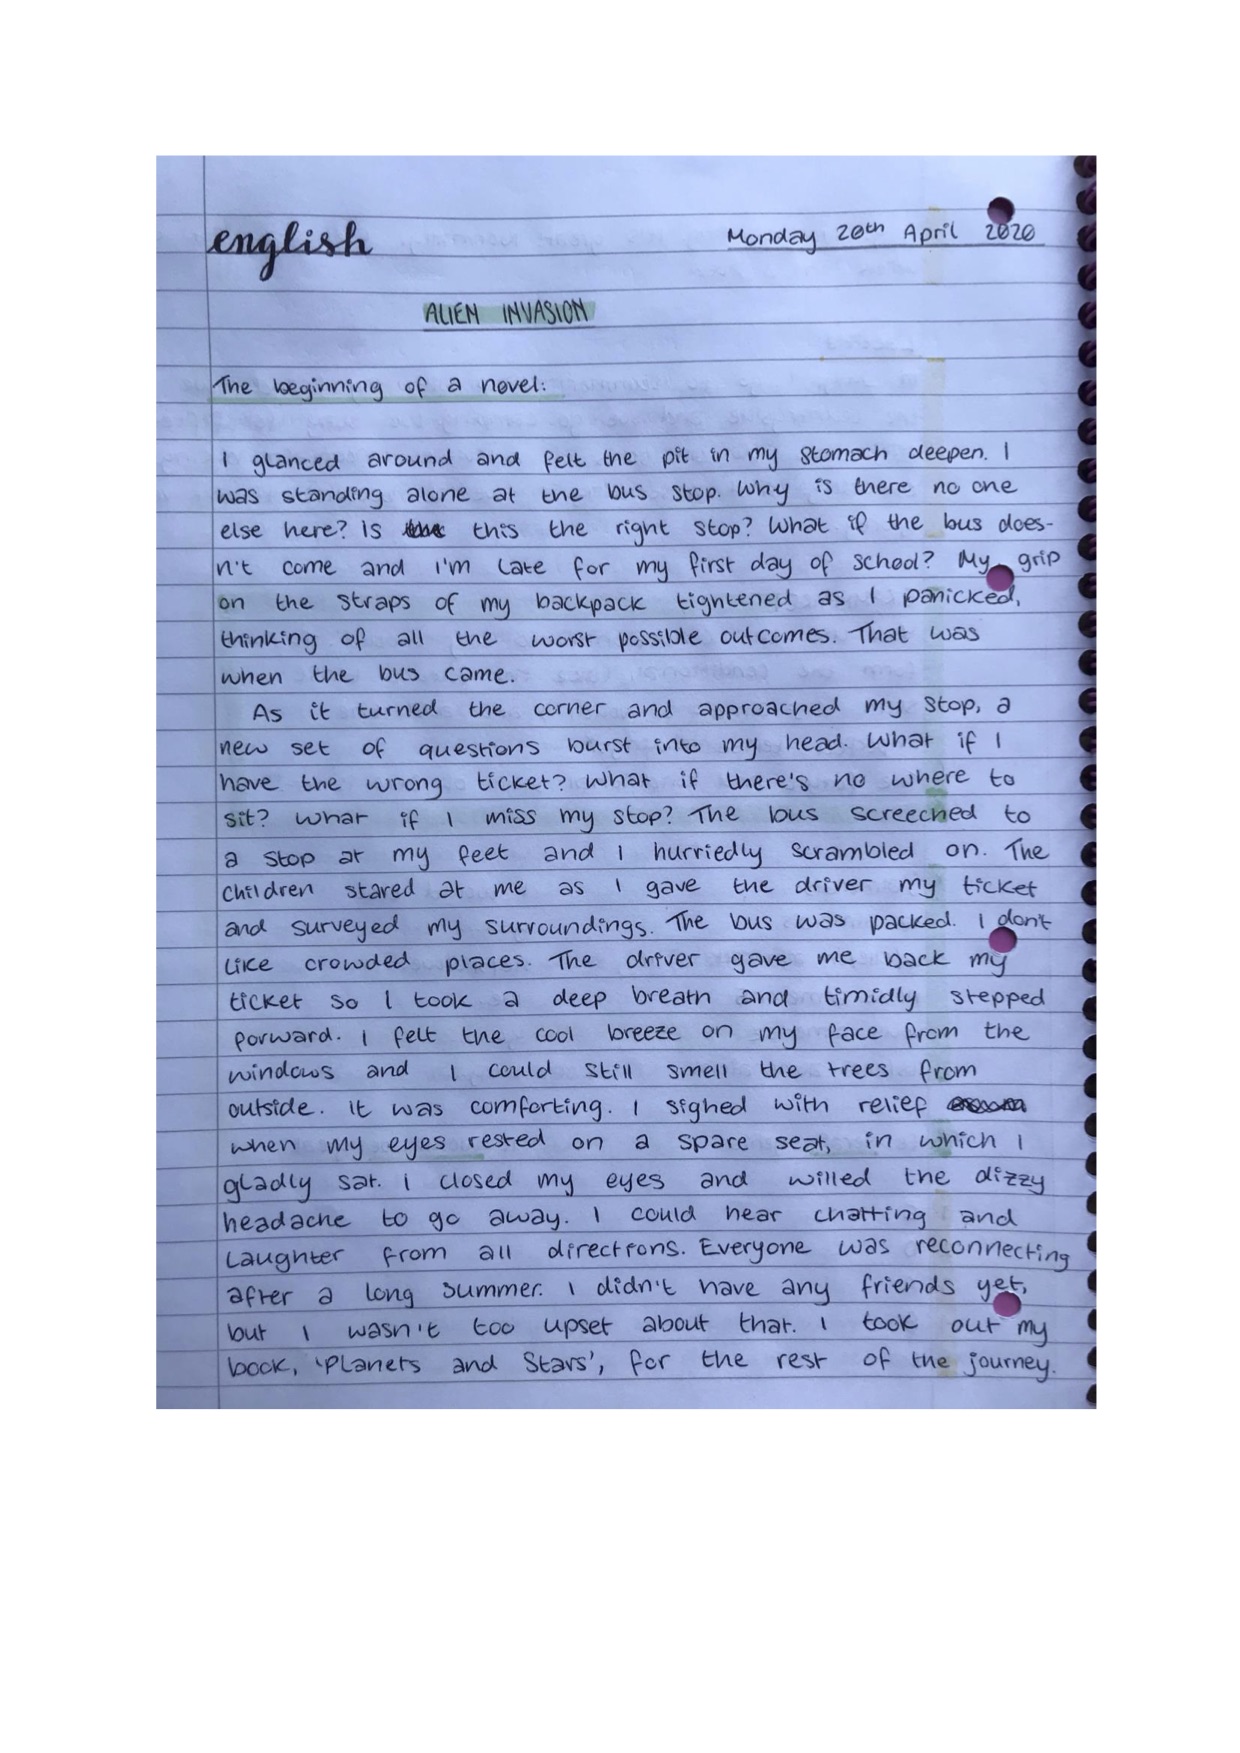 english
Monday 20th April 2020
ALIEN INVASION
The beginning of a novel:
I glanced around and felt the pit in my stomach deepen. I
was standing alone at the bus stop. Why is there no one
else here? Is this the right stop? What if the bus does-
n't come and I'm late for my first day of school? My grip
on the straps of my backpack tightened as I panicked,
thinking of all the worst possible outcomes. That was
when the bus came.
As it turned the corner and approached my stop, a
new set of questions burst into my head. What if I
have the wrong ticket? What if there's no where to
sit? What if I miss my stop? The bus screeched to
a stop at my feet and I hurriedly scrambled on. The
children stared at me as I gave the driver my ticket
and surveyed my surroundings. The bus was packed. I don't
like crowded places. The driver gave me back my
ticket so I took a deep breath and timidly stepped
forward. I felt the cool breeze on my face from the
windows and I could still smell the trees from
outside. It was comforting. I sighed with relief
when my eyes rested on a spare seat, in which I
gladly sat. I closed my eyes and willed the dizzy
headache to go away. I could hear chatting and
laughter from all directions. Everyone was reconnecting
after a long summer. I didn't have any friends yet,
but I wasn't too upset about that. I took out my
book, 'Planets and Stars', for the rest of the journey.